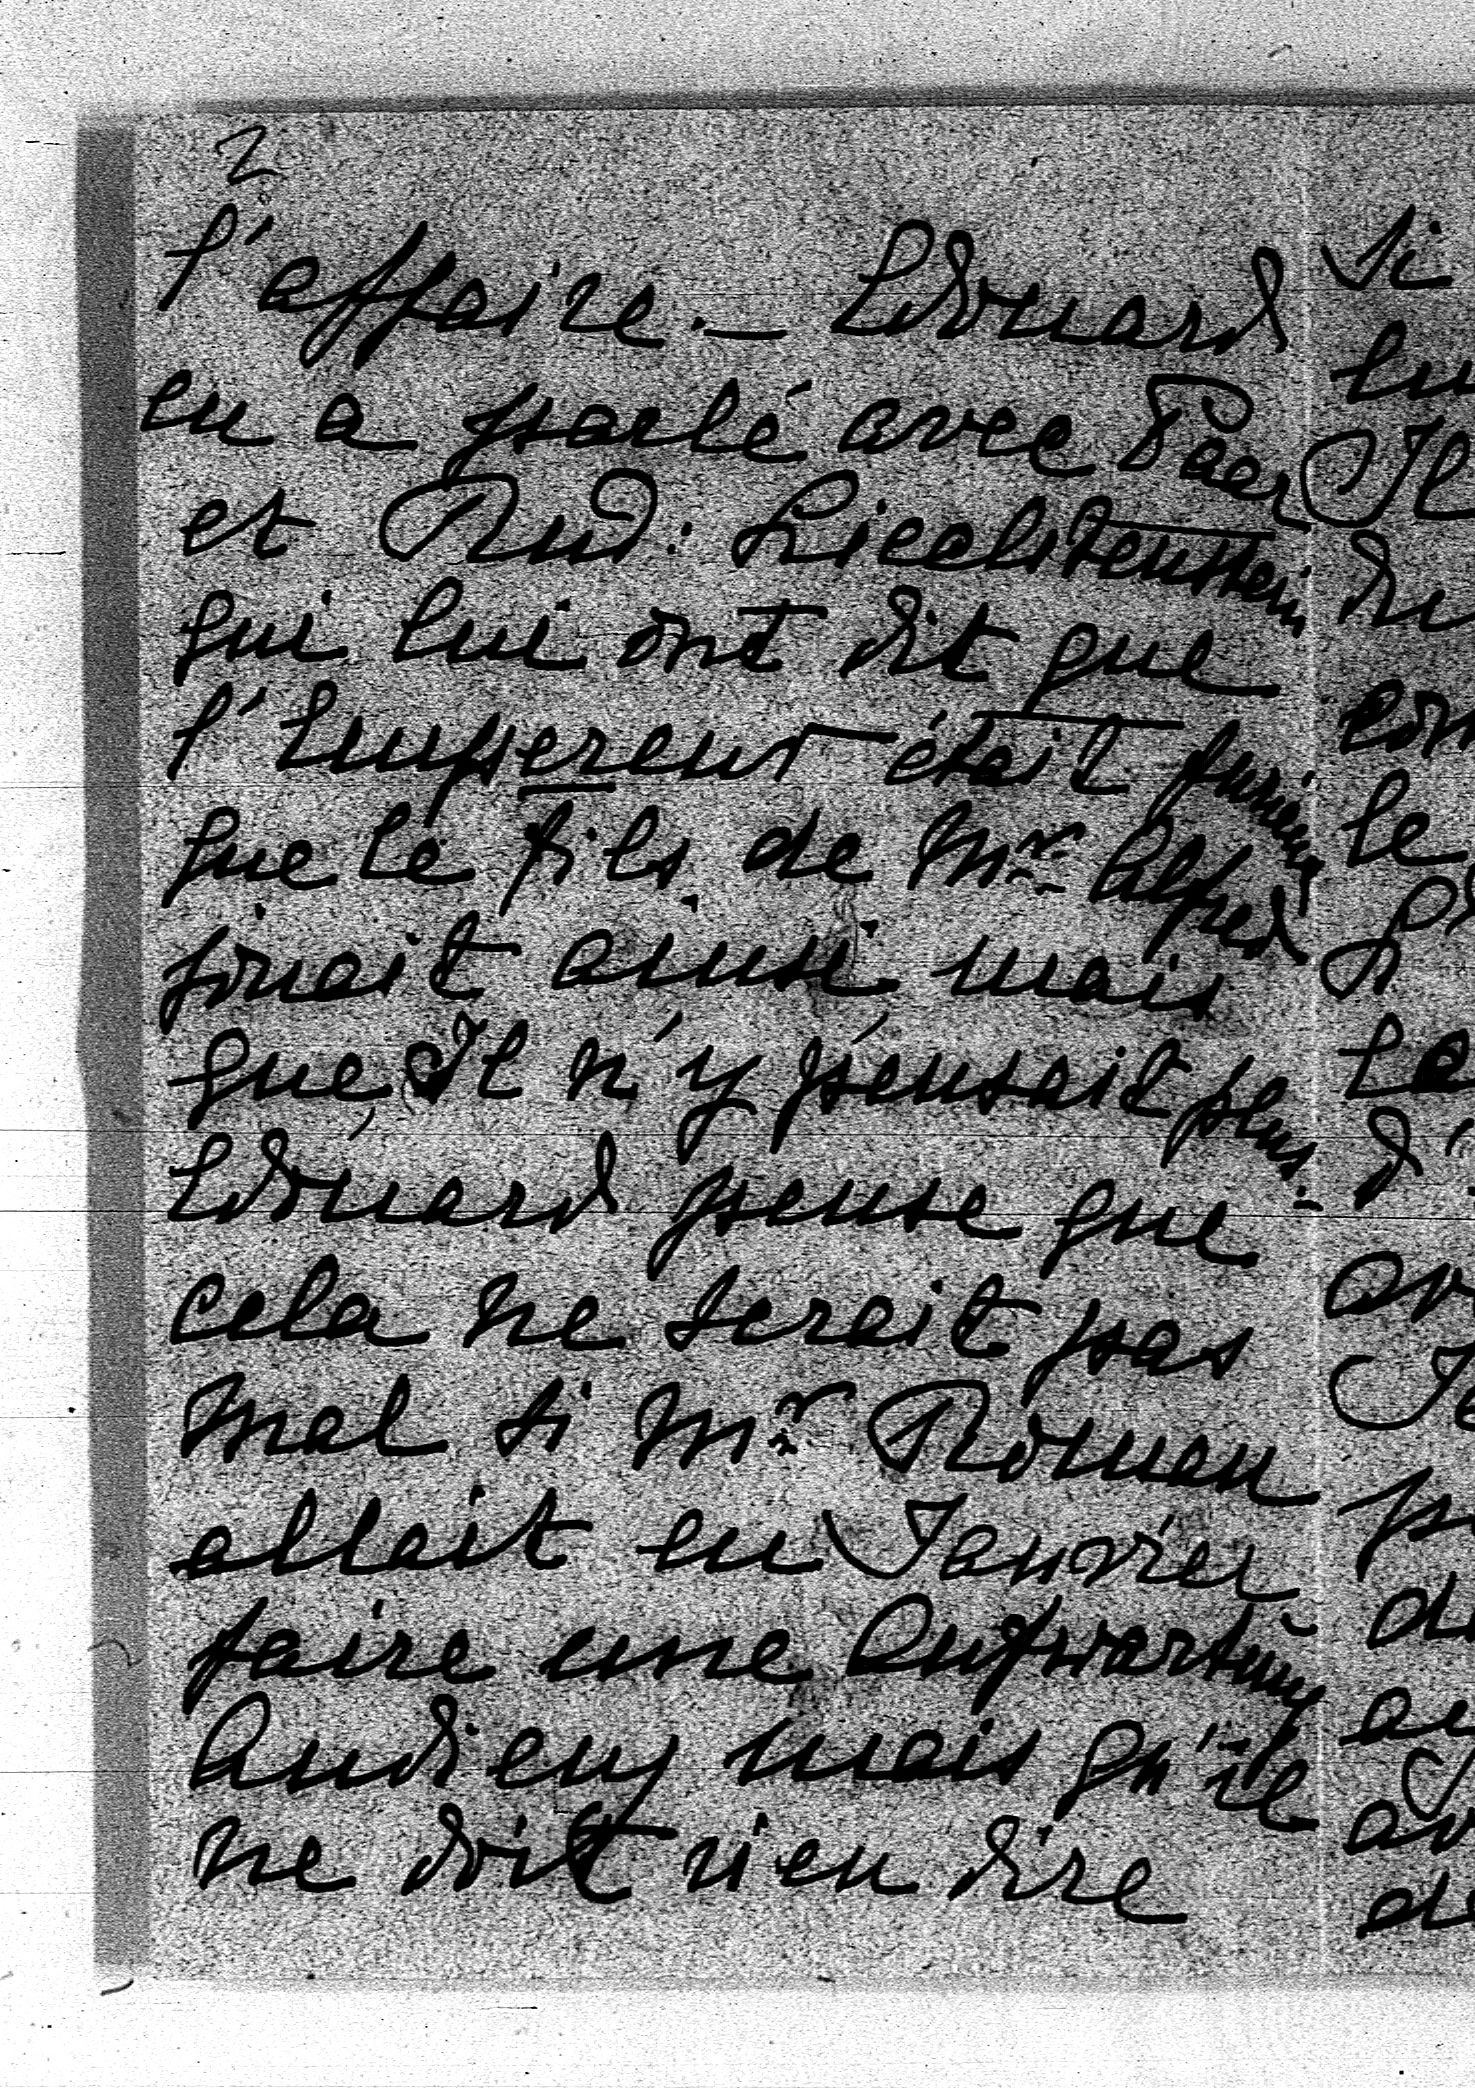 2.
l'affaire. — Edouard
en a parlé avec Paar
et Rud: Liechtenstein
qui lui ont dit que
l'Empereur était furieux
que le fils de Mr. Alfred
finait ainsi mais
que Il n'y pensait plus. -
Edouard pense que
cela ne serait pas
mal si Mr. Roman
allait en Janvier
faire une Aufwartung
Audienz mais qu'il
ne doit rien dire
Si
Il
le